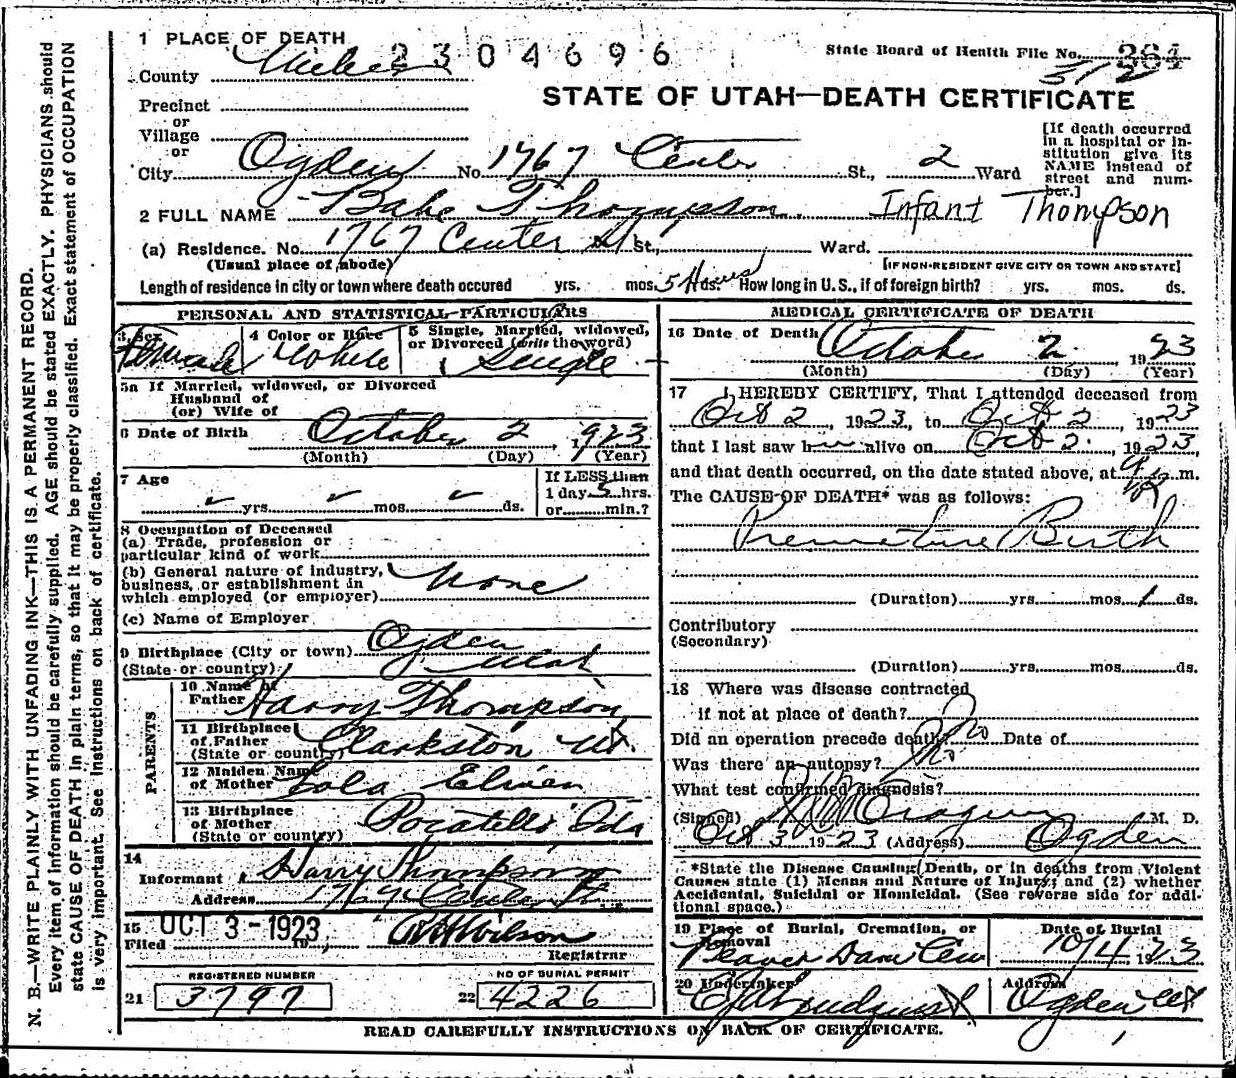 N. B.—WRITE PLAINLY WITH UNFADING INK—THIS IS A PERMANENT RECORD.
Every item of information should be carefully supplied. AGE should be stated EXACTLY. PHYSICIANS should
state CAUSE OF DEATH in plain terms, so that it may be properly classified. Exact statement of OCCUPATION
is very important. See instructions on back of certificate.
1 PLACE OF DEATH
2304696
State Board of Health File No. 364
512
County Weber
STATE OF UTAH—DEATH CERTIFICATE
Precinct
or
Village
or
City Ogden No. 1767 Center St., 2 Ward
[If death occurred in a hospital or institution give its NAME instead of street and number.]
2 FULL NAME Babe Thompson. Infant Thompson
(a) Residence. No. 1767 Center St St., Ward.
(Usual place of abode) [IF NON-RESIDENT GIVE CITY OR TOWN AND STATE]
Length of residence in city or town where death occured yrs. mos. 5 Hours ds. How long in U.S., if of foreign birth? yrs. mos. ds.
PERSONAL AND STATISTICAL PARTICULARS
3 Sex Female
4 Color or Race White
5 Single, Married, widowed, or Divorced (write the word) Single
5a If Married, widowed, or Divorced
Husband of
(or) Wife of
6 Date of Birth October 2, 1923
(Month) (Day) (Year)
7 Age
yrs. mos. ds.
If LESS than
1 day 5 hrs.
or min.?
8 Occupation of Deceased
(a) Trade, profession or
particular kind of work
(b) General nature of industry,
business, or establishment in
which employed (or employer) none
(c) Name of Employer
9 Birthplace (City or town) Ogden
(State or country) Utah
PARENTS
10 Name of
Father Harry Thompson
11 Birthplace
of Father
(State or country) Clarkston Ut.
12 Maiden Name
of Mother Lola
13 Birthplace
of Mother
(State or country) Pocatello Ida
14
Informant Harry Thompson
Address 1767 Center St.
15 OCT 3 - 1923
Filed 19 ,
R H Wilson
Registrar
REGISTERED NUMBER
21 3797
NO OF BURIAL PERMIT
22 4226
MEDICAL CERTIFICATE OF DEATH
16 Date of Death October 2. 1923
(Month) (Day) (Year)
17 I HEREBY CERTIFY, That I attended deceased from
Oct 2, 1923, to Oct 2, 1923
that I last saw h alive on Oct 2., 1923,
and that death occurred, on the date stated above, at m.
The CAUSE OF DEATH* was as follows:
Premature Birth
(Duration) yrs. mos. 1 ds.
Contributory
(Secondary)
(Duration) yrs. mos. ds.
18 Where was disease contracted
if not at place of death?
Did an operation precede death? No Date of
Was there an autopsy? No
What test confirmed diagnosis?
(Signed) M. D.
Oct 3 1923 (Address) Ogden
*State the Disease Causing Death, or in deaths from Violent
Causes state (1) Means and Nature of Injury; and (2) whether
Accidental, Suicidal or Homicidal. (See reverse side for addi-
tional space.)
19 Place of Burial, Cremation, or
Removal
Beaver Dam Cem
Date of Burial
10/4 1923
20 Undertaker
Address
Ogden Ut
READ CAREFULLY INSTRUCTIONS ON BACK OF CERTIFICATE.